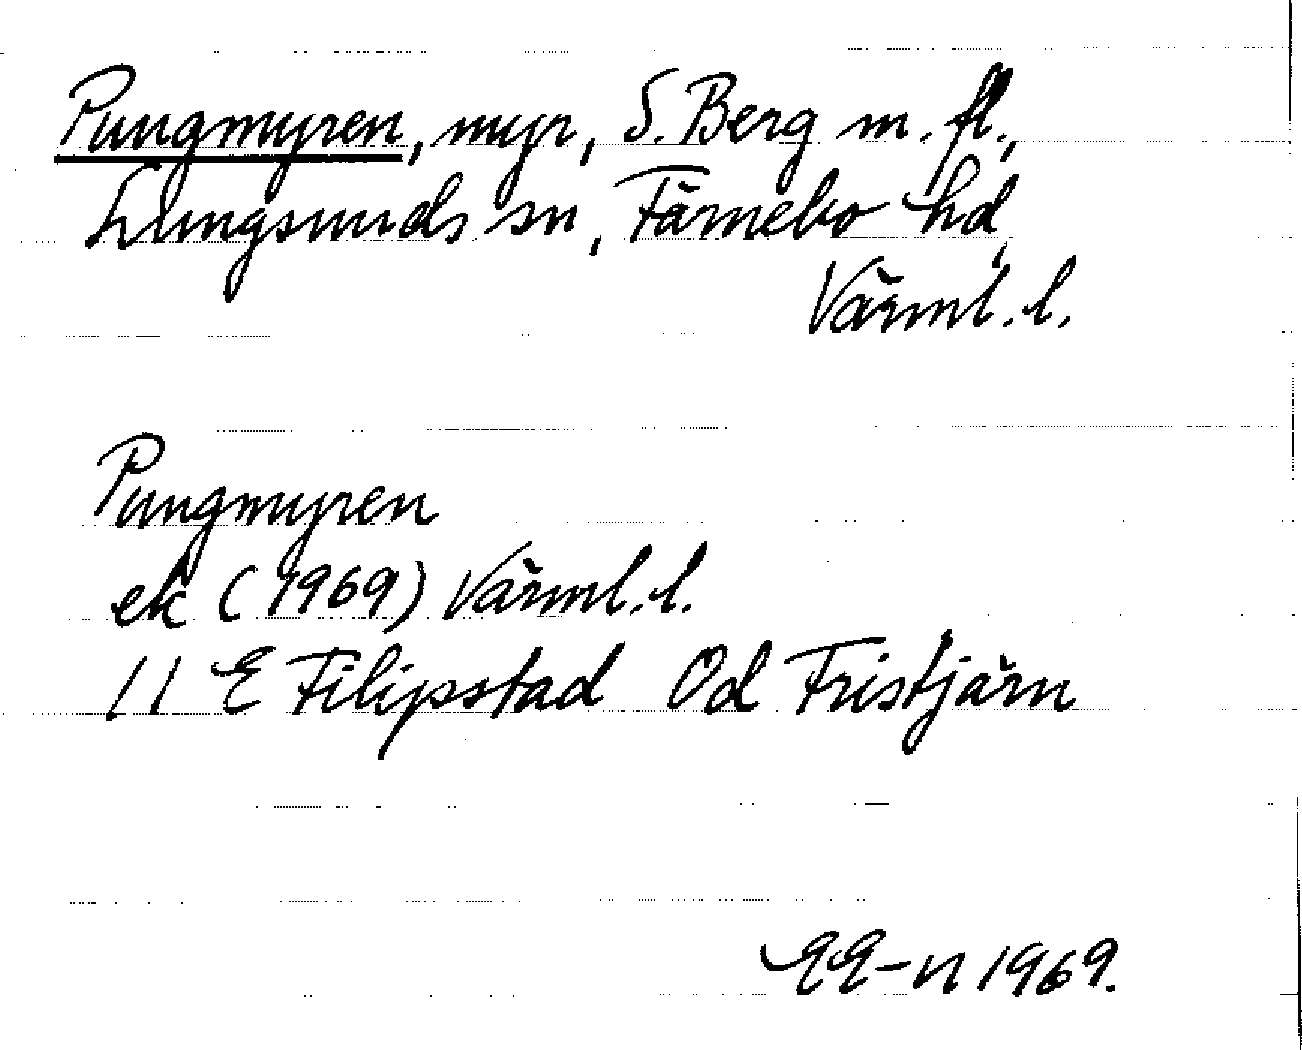 Pungmyren, myr, S. Berg m. fl.,
Lungsunds sn, Färnebo hd,
Värml. l.
Pungmyren
ek (1969) Värml. l.
11 E Filipstad Od Fristjärn
EE-n 1969.